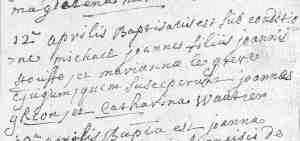 magdalena
12a aprilis Baptisatus est sub conditio
ne michael joannes filius joannis
et marianna le
Conjugum, quem susceperunt joannes
et Catharina Wautier
aprilis Bapta est joanna